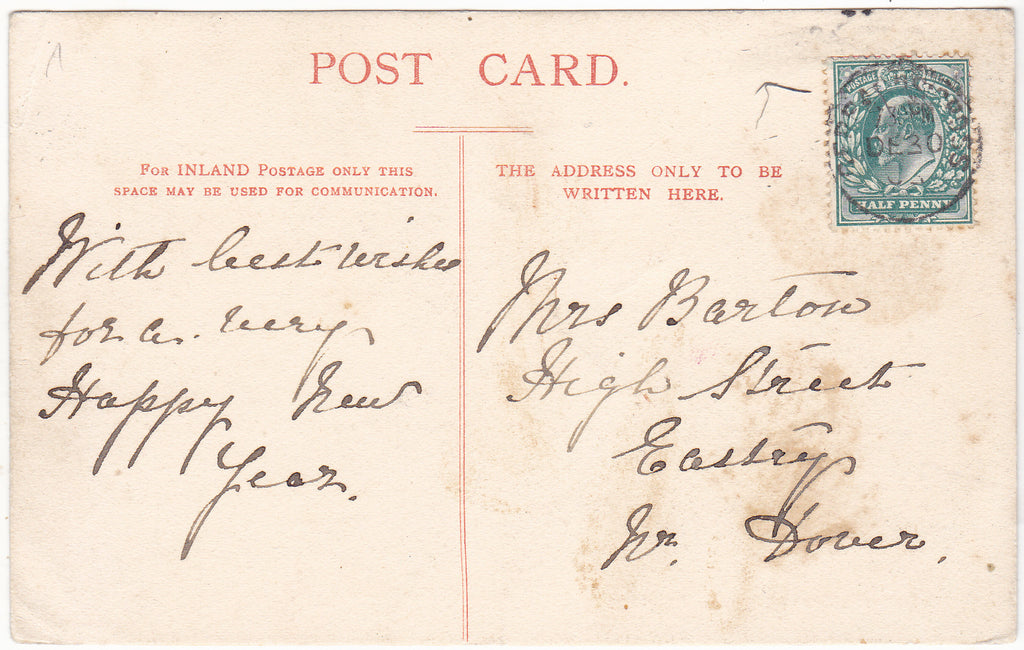 POST CARD.
FOR INLAND POSTAGE ONLY THIS
SPACE MAY BE USED FOR COMMUNICATION.
THE ADDRESS ONLY TO BE
WRITTEN HERE.
POSTAGE
DE 30
HALF PENNY
With best wishes
for a very
Happy New
Year.
Mrs Barton
High Street
Eastry
Nr. Dover.